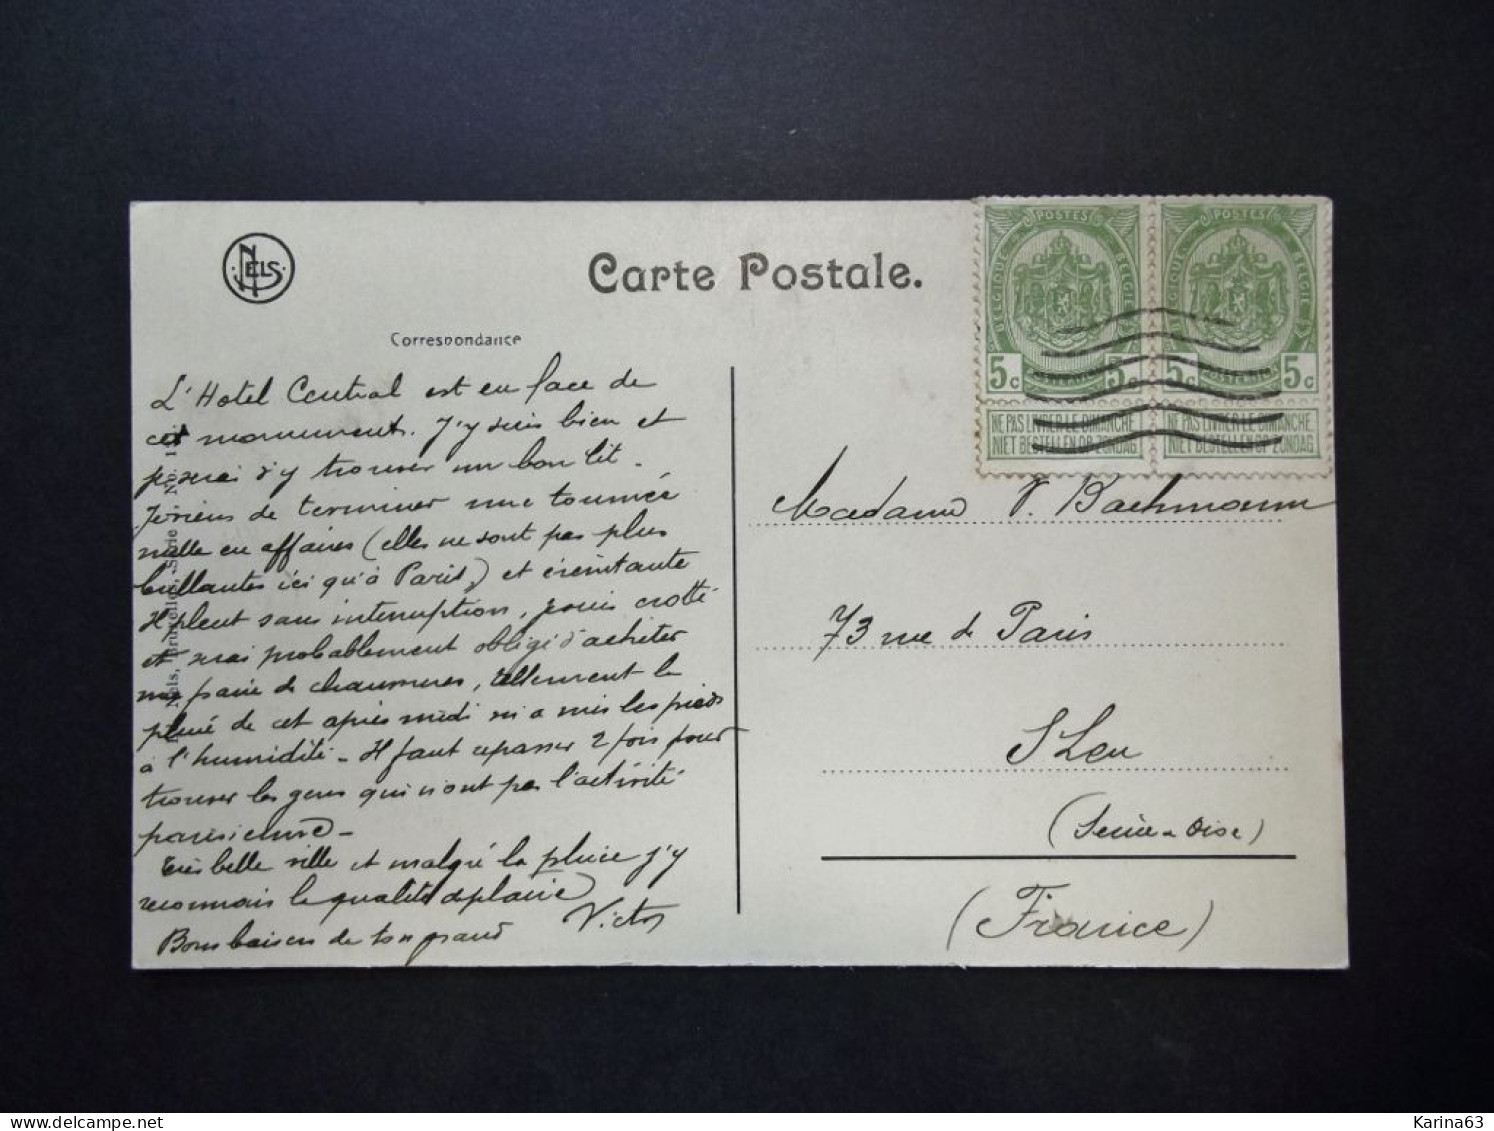 NELS
Carte Postale.
Correspondance
POSTES
BELGIQUE
BELGIE
5c
5c
NE PAS LIVRER LE DIMANCHE
NIET BESTELLEN OP ZONDAG
POSTES
BELGIQUE
BELGIE
5c
5c
NE PAS LIVRER LE DIMANCHE
NIET BESTELLEN OP ZONDAG
L'Hotel Central est en face de
cet monument. J'y suis bien et
pserai d'y trouver un bon lit.
Je viens de terminer une tournée
nulle en affaires (elles ne sont pas plus
brillantes ici qu'à Paris) et éreintante
Il pleut sans interruption, je suis crotté
et serai probablement obligé d'acheter
une paire de chaussures, tellement la
pluie de cet après midi m'a mis les pieds
à l'humidité - Il faut repasser 2 fois pour
trouver les gens qui n'ont pas l'activité
parisienne -
Très belle ville et malgré la pluie j'y
reconnais la qualité de plaire
Bons baisers de ton grand Victor
Nels, Bruxelles, Série No. 1
Madame V. Bachmann
73 rue de Paris
S Leu
(Seine & Oise)
(France)
Karina63